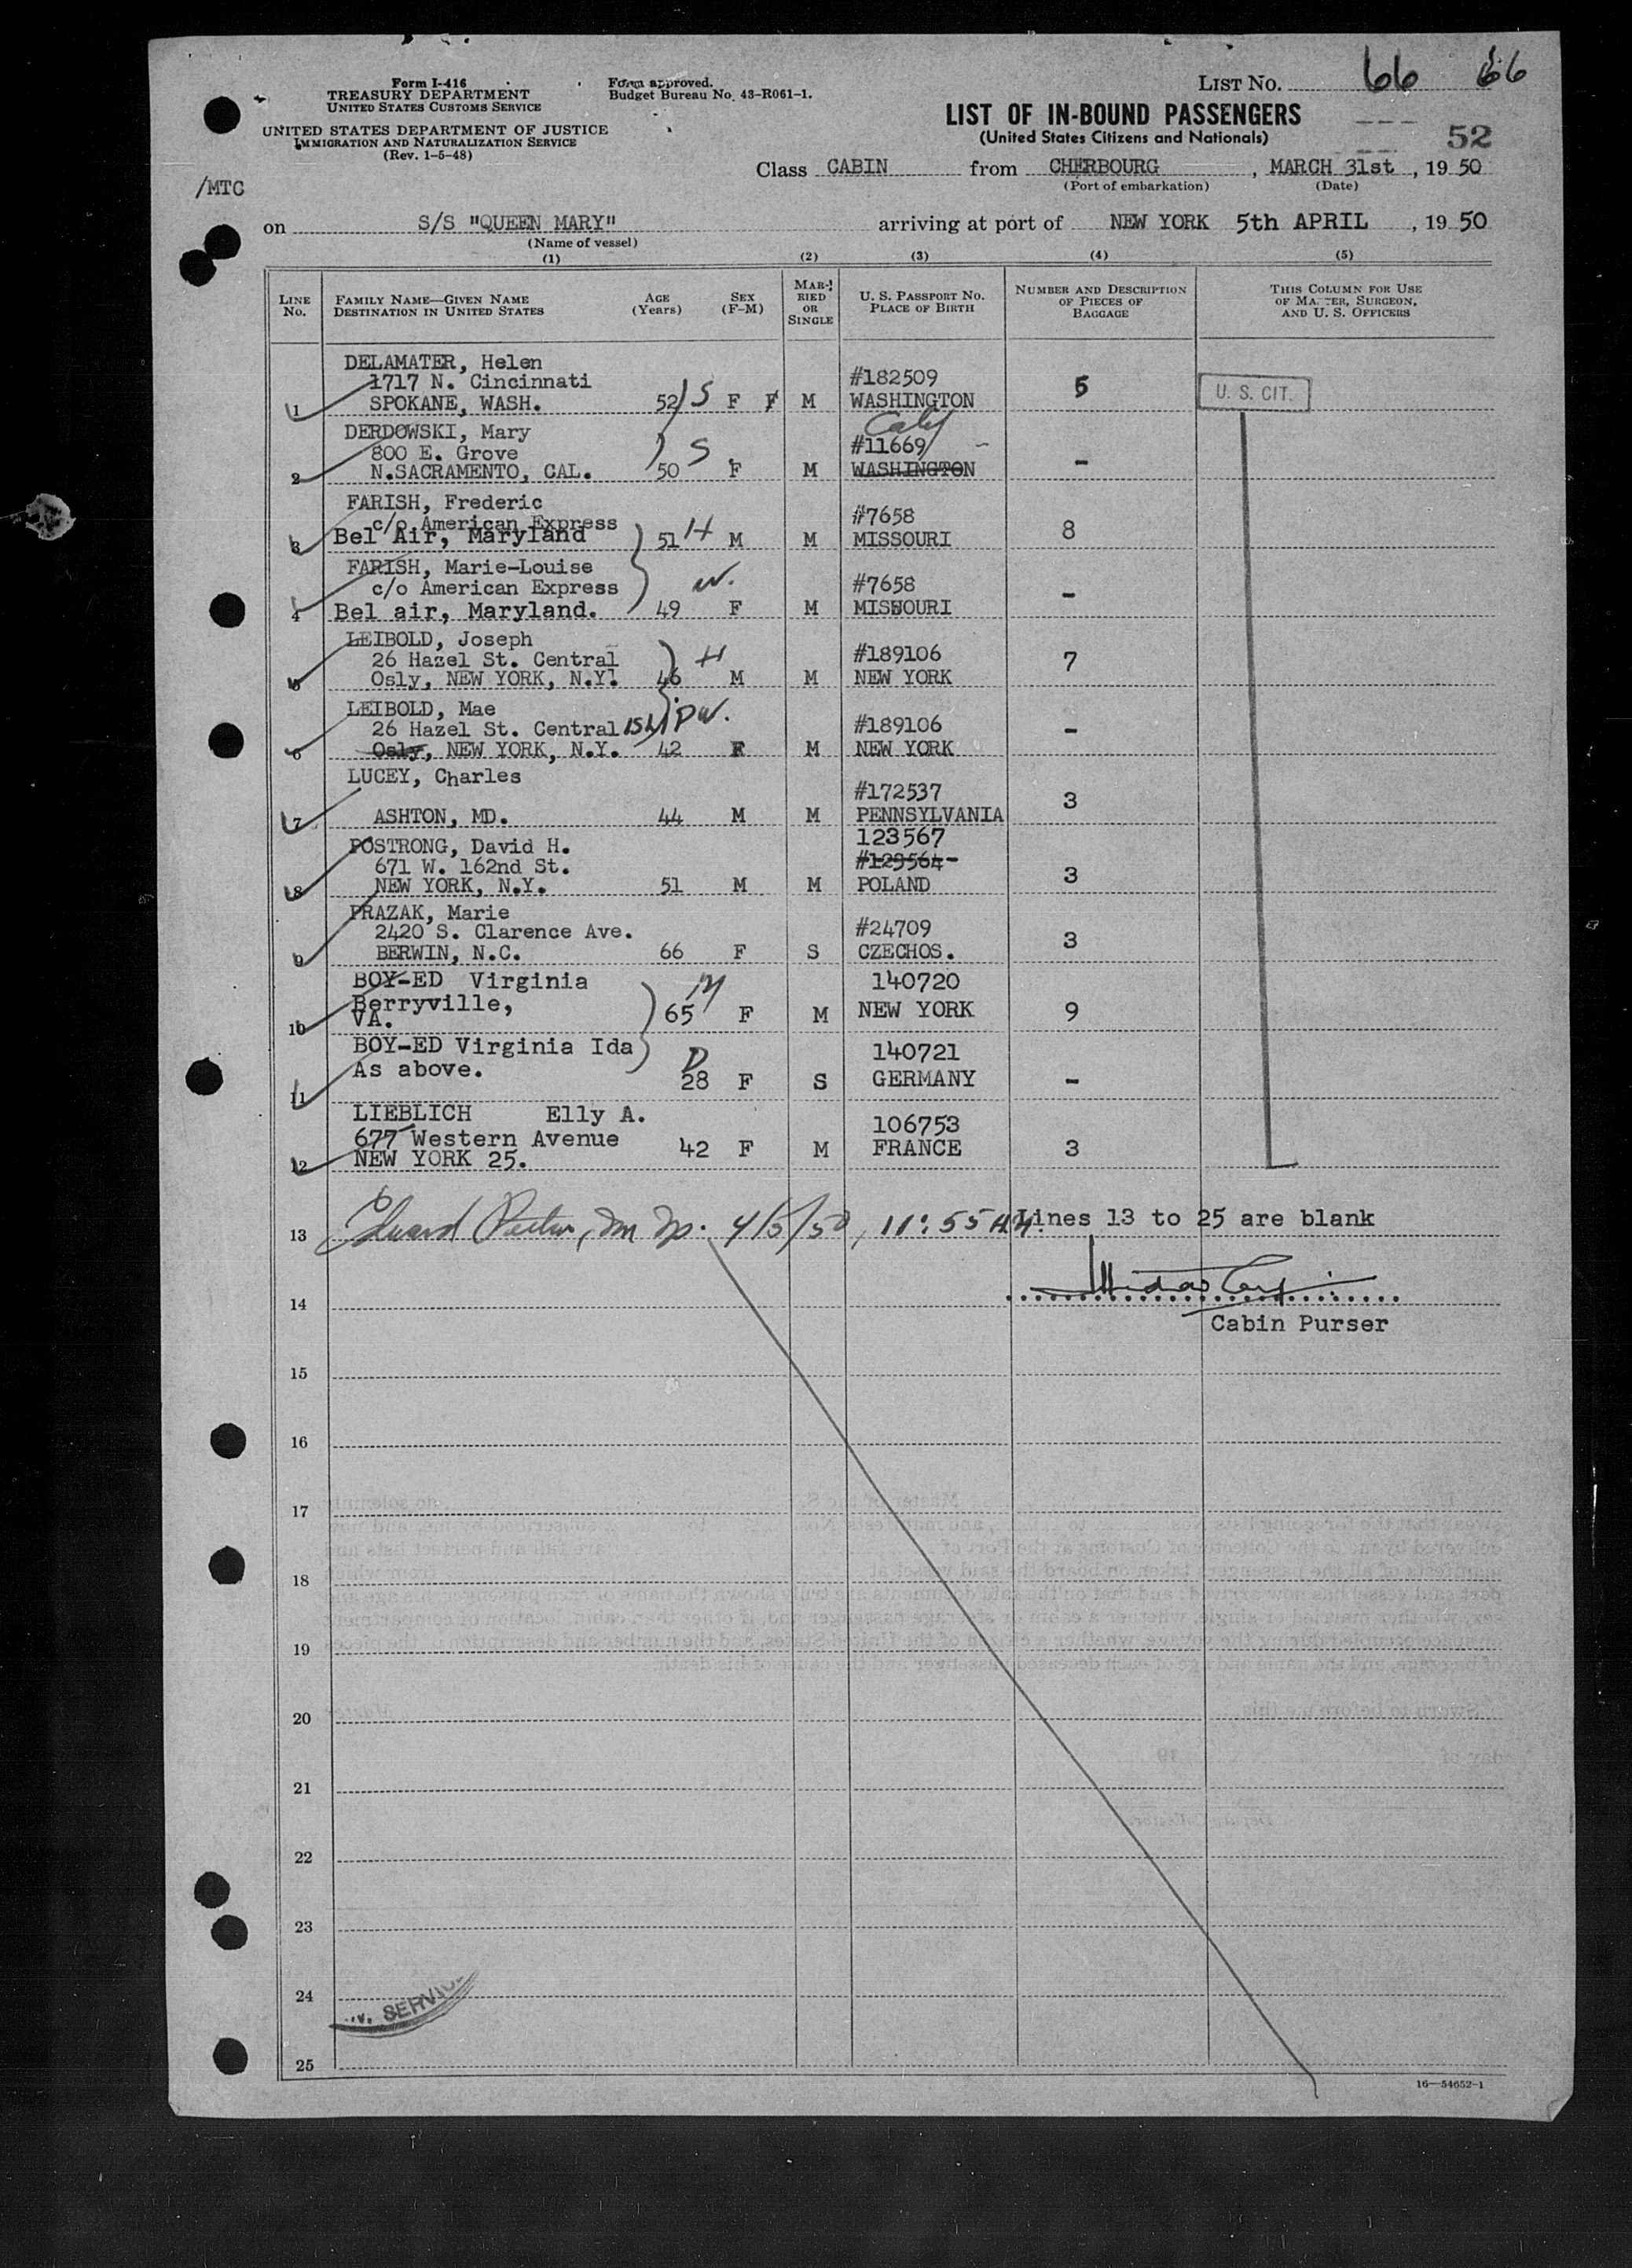 Form I-416
TREASURY DEPARTMENT
UNITED STATES CUSTOMS SERVICE
UNITED STATES DEPARTMENT OF JUSTICE
IMMIGRATION AND NATURALIZATION SERVICE
(Rev. 1-5-48)
Form approved.
Budget Bureau No. 43-R061-1.
LIST NO. 66 66
LIST OF IN-BOUND PASSENGERS
(United States Citizens and Nationals)
52
/MTC
Class CABIN from CHERBOURG, MARCH 31st, 1950
(Port of embarkation) (Date)
on S/S "QUEEN MARY" arriving at port of NEW YORK 5th APRIL, 1950
(Name of vessel)
(1) (2) (3) (4) (5)
LINE No. FAMILY NAME—GIVEN NAME DESTINATION IN UNITED STATES AGE (Years) SEX (F-M) MARRIED OR SINGLE U. S. PASSPORT NO. PLACE OF BIRTH NUMBER AND DESCRIPTION OF PIECES OF BAGGAGE THIS COLUMN FOR USE OF MASTER, SURGEON, AND U. S. OFFICERS
DELAMATER, Helen
1717 N. Cincinnati #182509 5 U. S. CIT.
1 SPOKANE, WASH. 52 S F F M WASHINGTON
DERDOWSKI, Mary Calif
800 E. Grove S #11669
2 N.SACRAMENTO, CAL. 50 F M WASHINGTON -
FARISH, Frederic
c/o American Express #7658 8
3 Bel Air, Maryland 51 H M M MISSOURI
FARISH, Marie-Louise
c/o American Express W. #7658 -
4 Bel air, Maryland. 49 F M MISSOURI
LEIBOLD, Joseph
26 Hazel St. Central H #189106 7
5 Osly, NEW YORK, N.Y. 46 M M NEW YORK
LEIBOLD, Mae
26 Hazel St. Central ISLIP W. #189106 -
6 Osly, NEW YORK, N.Y. 42 F M NEW YORK
LUCEY, Charles
#172537 3
7 ASHTON, MD. 44 M M PENNSYLVANIA
POSTRONG, David H. 123567
671 W. 162nd St. #129564 3
8 NEW YORK, N.Y. 51 M M POLAND
PRAZAK, Marie
2420 S. Clarence Ave. #24709 3
9 BERWIN, N.C. 66 F S CZECHOS.
BOY-ED Virginia M 140720
Berryville, 65 F M NEW YORK 9
10 VA.
BOY-ED Virginia Ida D 140721
11 As above. 28 F S GERMANY -
LIEBLICH Elly A. 106753
677 Western Avenue 42 F M FRANCE 3
12 NEW YORK 25.
13 4/5/50, 11:55 AM. Lines 13 to 25 are blank
14
Cabin Purser
15
16
17
18
19
20
21
22
23
24 SERVIC
25
16—54652-1